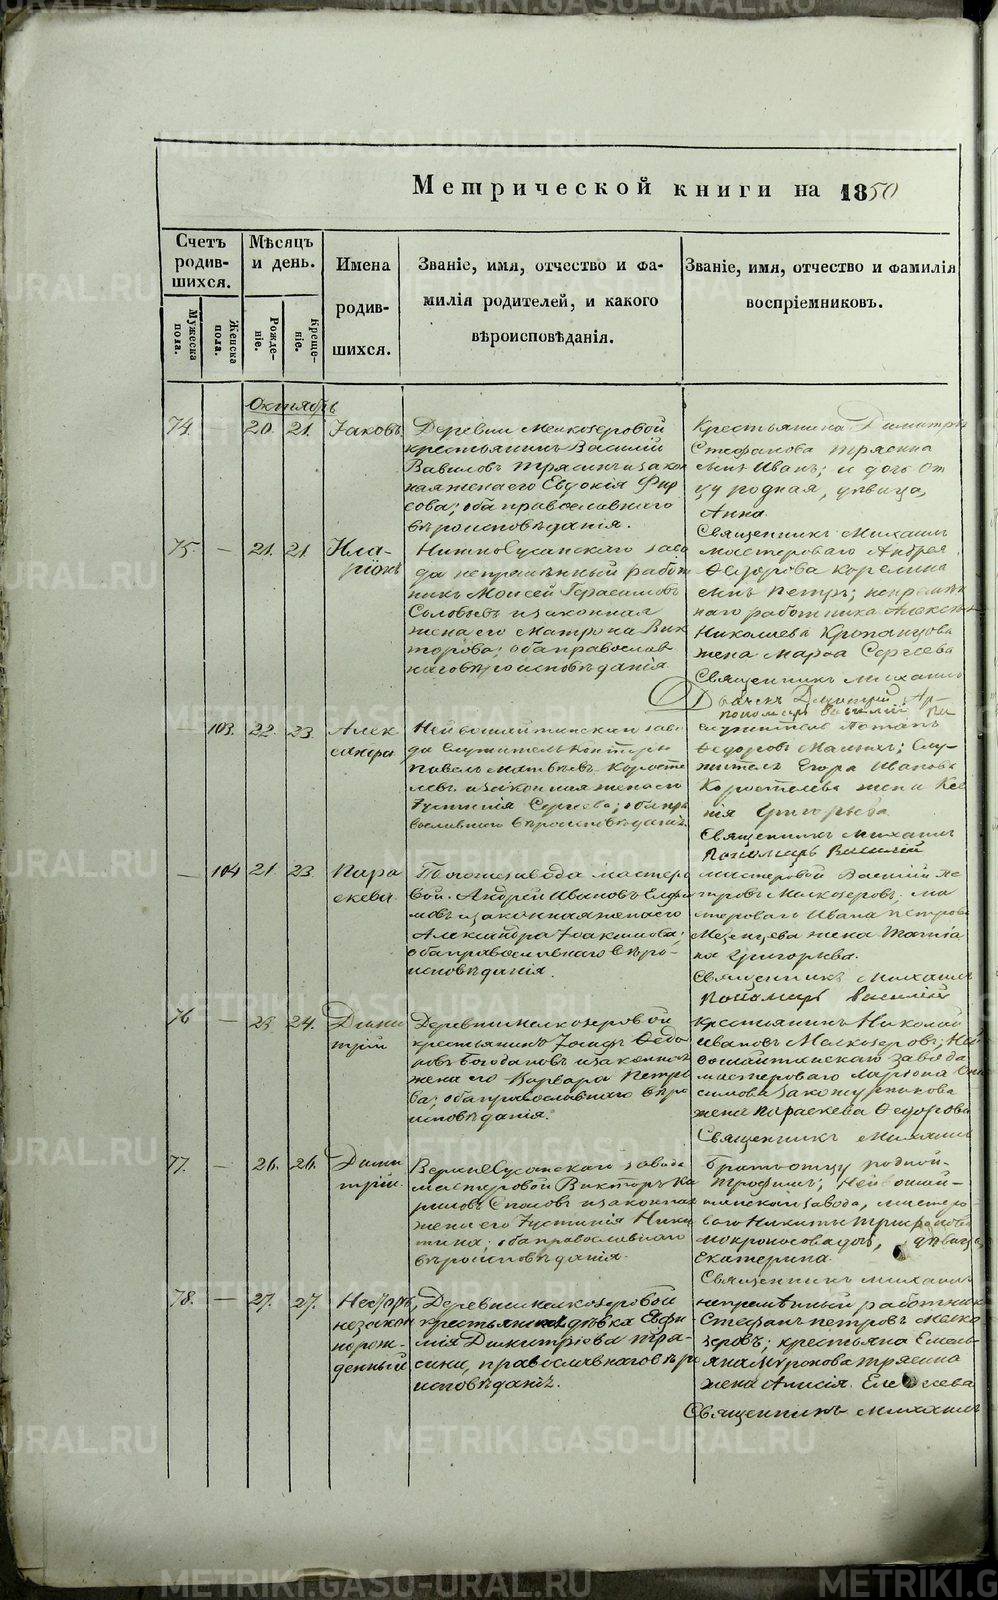 Метрической книги на 1850
Счетъ родив-шихся.
Мужеска пола.
Женска пола.
Мѣсяцъ и день.
Рожде-ніе.
Креще-ніе.
Имена
родив-
шихся.
Званіе, имя, отчество и фа-
милія родителей, и какого
вѣроисповѣданія.
Званіе, имя, отчество и фамилія
воспріемниковъ.
Октябрь
74. — 20. 21. Іаковъ
Деревни Мелкозеровой
крестьянинъ Василій
Вавиловъ Трясинъ и закон
ная жена его Евдокія Фир
сова; оба православнаго
вѣроисповѣданія.
Крестьянина Димитрія
Стефанова Трясина
сынъ Иванъ; и дочь от
цу родная, дѣвица,
Анна.
Священникъ Михаилъ
75. — 21. 21. Ила-
ріонъ
НижноСусанскаго заво
да непремѣнный работ
никъ Моисей Герасимовъ
Соловьевъ и законная
жена его Матрона Вик
торова; оба православ
наго вѣроисповѣданія
мастероваго Андрея
Ѳедорова Корелина
сынъ Петръ; непремѣн
наго работника Алексѣя
Николаева
жена Марѳа Сергѣева
Священникъ Михаилъ
Дьячекъ Димитрій
Пономарь Василій
— 103. 22. 23. Алек
сандра
Нейвошайтанскаго заво
да служитель конторы
Павелъ Матвѣевъ Коросте
левъ и законная жена его
Іустинія Сергѣева; оба пра
вославнаго вѣроисповѣданія.
служитель Потапъ
Ѳедоровъ Малыхъ; слу-
жителя Егора Иванова
Коростелева жена Ксе
нія Григорьева
Священникъ Михаилъ
Пономарь Василій
— 104 21. 23. Пара
скева.
Тогоже завода мастеро
вой Андрей Ивановъ Елфи
мовъ и законная жена его
Александра Іоакимова;
оба православнаго вѣро-
исповѣданія.
мастеровой Василій Пе
тровъ Мелкозеровъ; ма
стероваго Ивана Петрова
Мезенцева жена Татіа
на Григорьева.
Священникъ Михаилъ
Пономарь Василій
76 — 23 24. Дими
трій
Деревни Мелкозеровой
крестьянинъ Іосифъ Ѳедо
ровъ Богодановъ и законная
жена его Варвара Петро
ва; оба православнаго вѣро
исповѣданія.
Крестьянинъ Николай
Ивановъ Мелкозеровъ; Ней
вошайтанскаго завода
мастероваго Ларіона Они
симова Закожурникова
жена Параскева Ѳедорова
Священникъ Михаилъ
77. — 26. 26. Дими
трій.
ВерхнеСусанскаго завода
мастеровой Викторъ Ка
риловъ и законная
жена его Іустинія Ники
тина; оба православнаго
вѣроисповѣданія.
Братъ отцу родной
Трофимъ; Нейвошай-
танскаго завода, мастеро
ваго Никиты Трифонова
Мокроносова дочь, дѣвица,
Екатерина.
Священникъ Михаилъ
78. — 27. 27. Несторъ,
незакон
норож-
денный
Деревни Мелкозеровой
крестьянская дѣвка Евфи
мія Димитріева Тря-
сина, православнаго вѣро
исповѣданія.
непремѣнный работникъ
Стефанъ Петровъ Мелко
зеровъ; крестьянина Емель
яна Миронова Трясина
жена Анисія Елисеева
Священникъ Михаилъ
METRIKI.GASO-URAL.RU